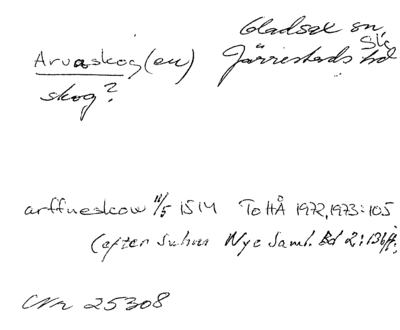 Gladsax sn,
Sk,
Arvaskog(en)
Järrestads hd
skog?
arffueskow 11/5 1514 ToHÅ 1972,1973:105
(efter Suhm Nye Saml. Bd 2:136ff.
Nr 25308